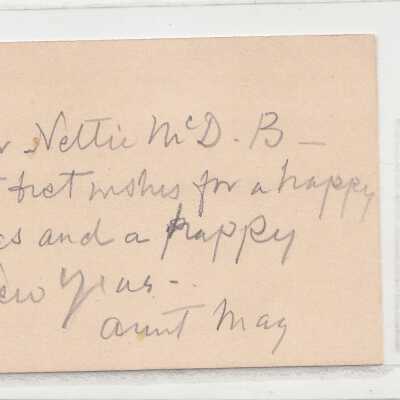 Nettie McD. B —
best wishes for a happy
and a happy
New Year -
Aunt Mag